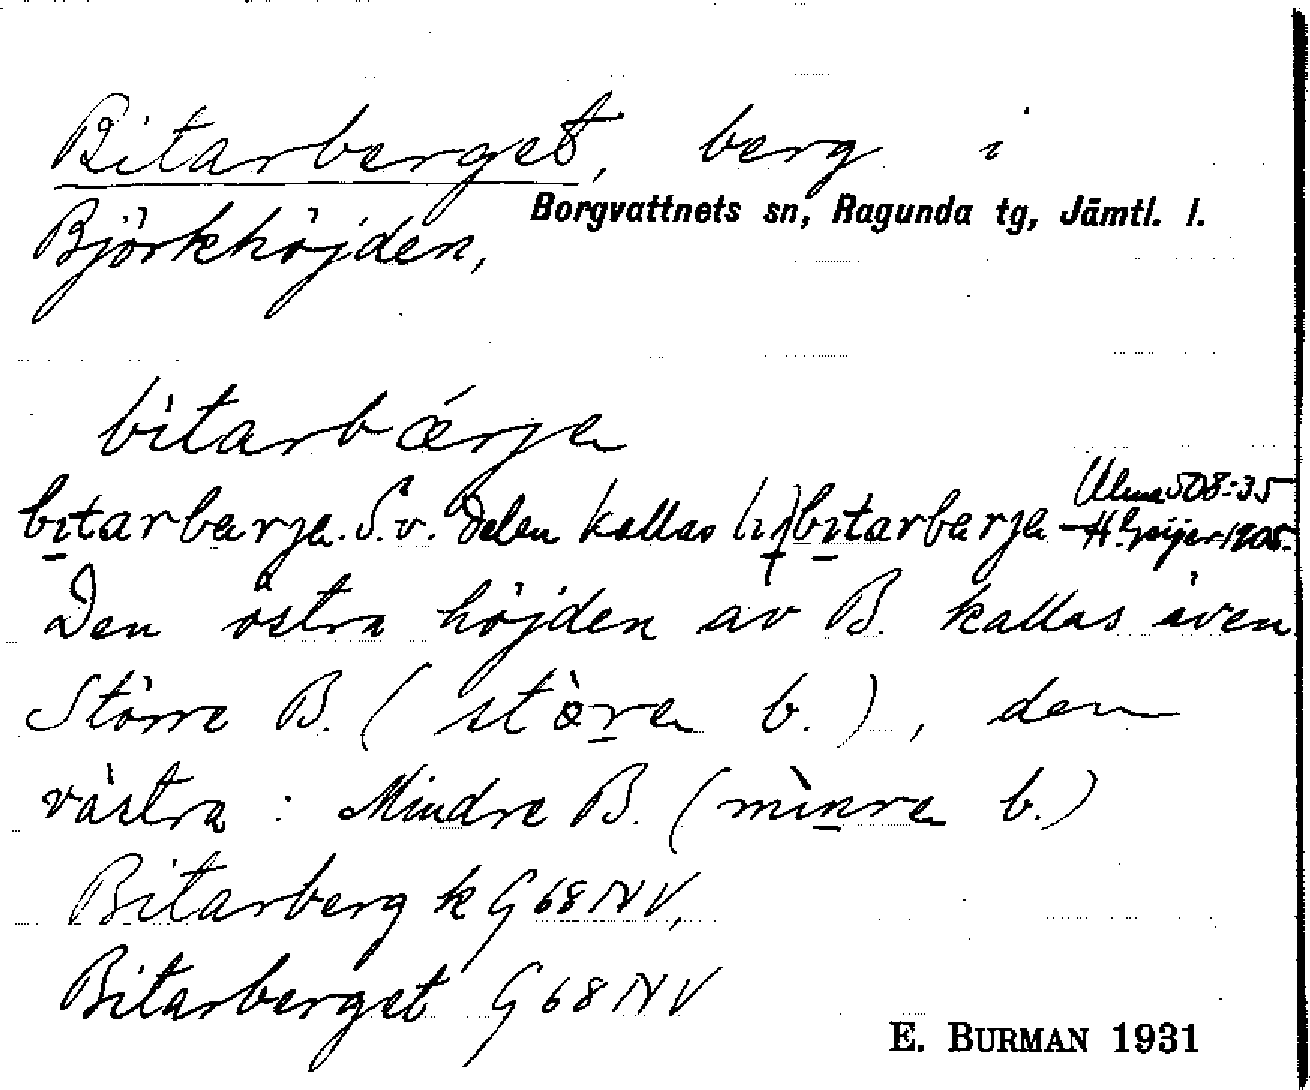 Bitarberget, berg i
Borgvattnets sn, Ragunda tg, Jämtl. l.
Björkhöjden,
bìtarbǽrjɐ
bitarbɐrjɐ. S. v. delen kallas bitarbɐrjɐ
Ulma 508:35
H Geijer 1905.
Den östra höjden av B. kallas även
Större B. ( stö̀rɐ b. ) , den
västra : Mindre B. ( mìnrɐ b.)
Bitarberg k G 68 NV,
Bitarberget G 68 NV
E. BURMAN 1931